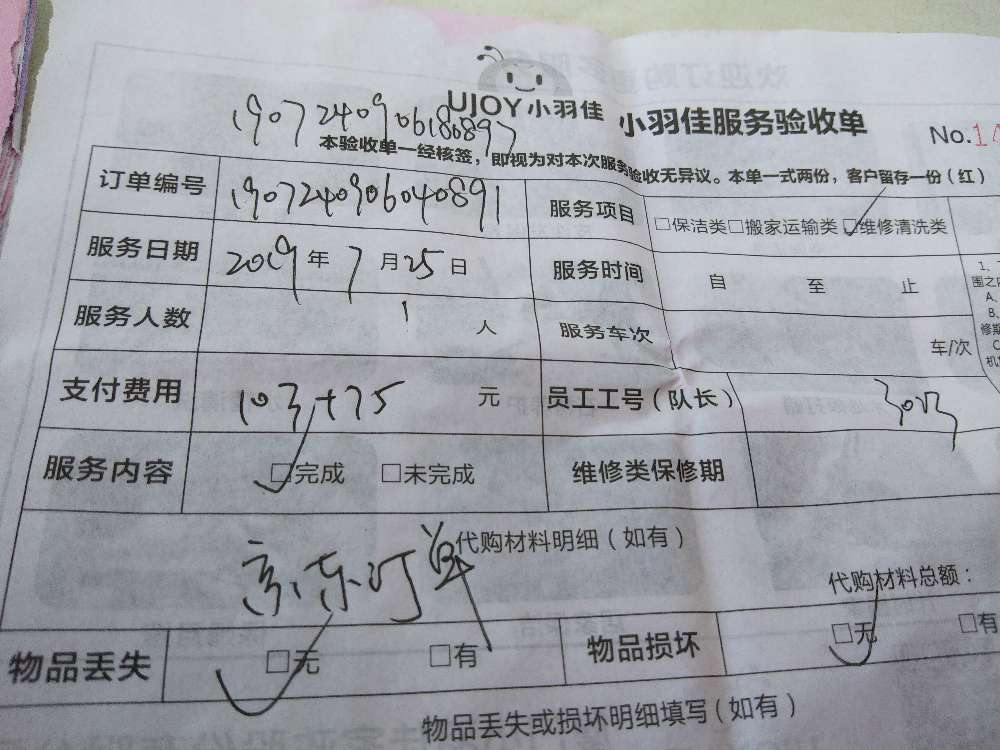 UJOY小羽佳 小羽佳服务验收单 No.
1907240906180897
本验收单一经核签，即视为对本次服务验收无异议。本单一式两份，客户留存一份（红）
订单编号 1907240906040891 服务项目 □保洁类□搬家运输类□维修清洗类
服务日期 2019年7月25日 服务时间 自 至 止
服务人数 1人 服务车次 车/次
支付费用 103+75 元 员工工号（队长）
服务内容 □完成 □未完成 维修类保修期
代购材料明细（如有）
京东订单
代购材料总额：
物品丢失 □无 □有 物品损坏 □无 □有
物品丢失或损坏明细填写（如有）